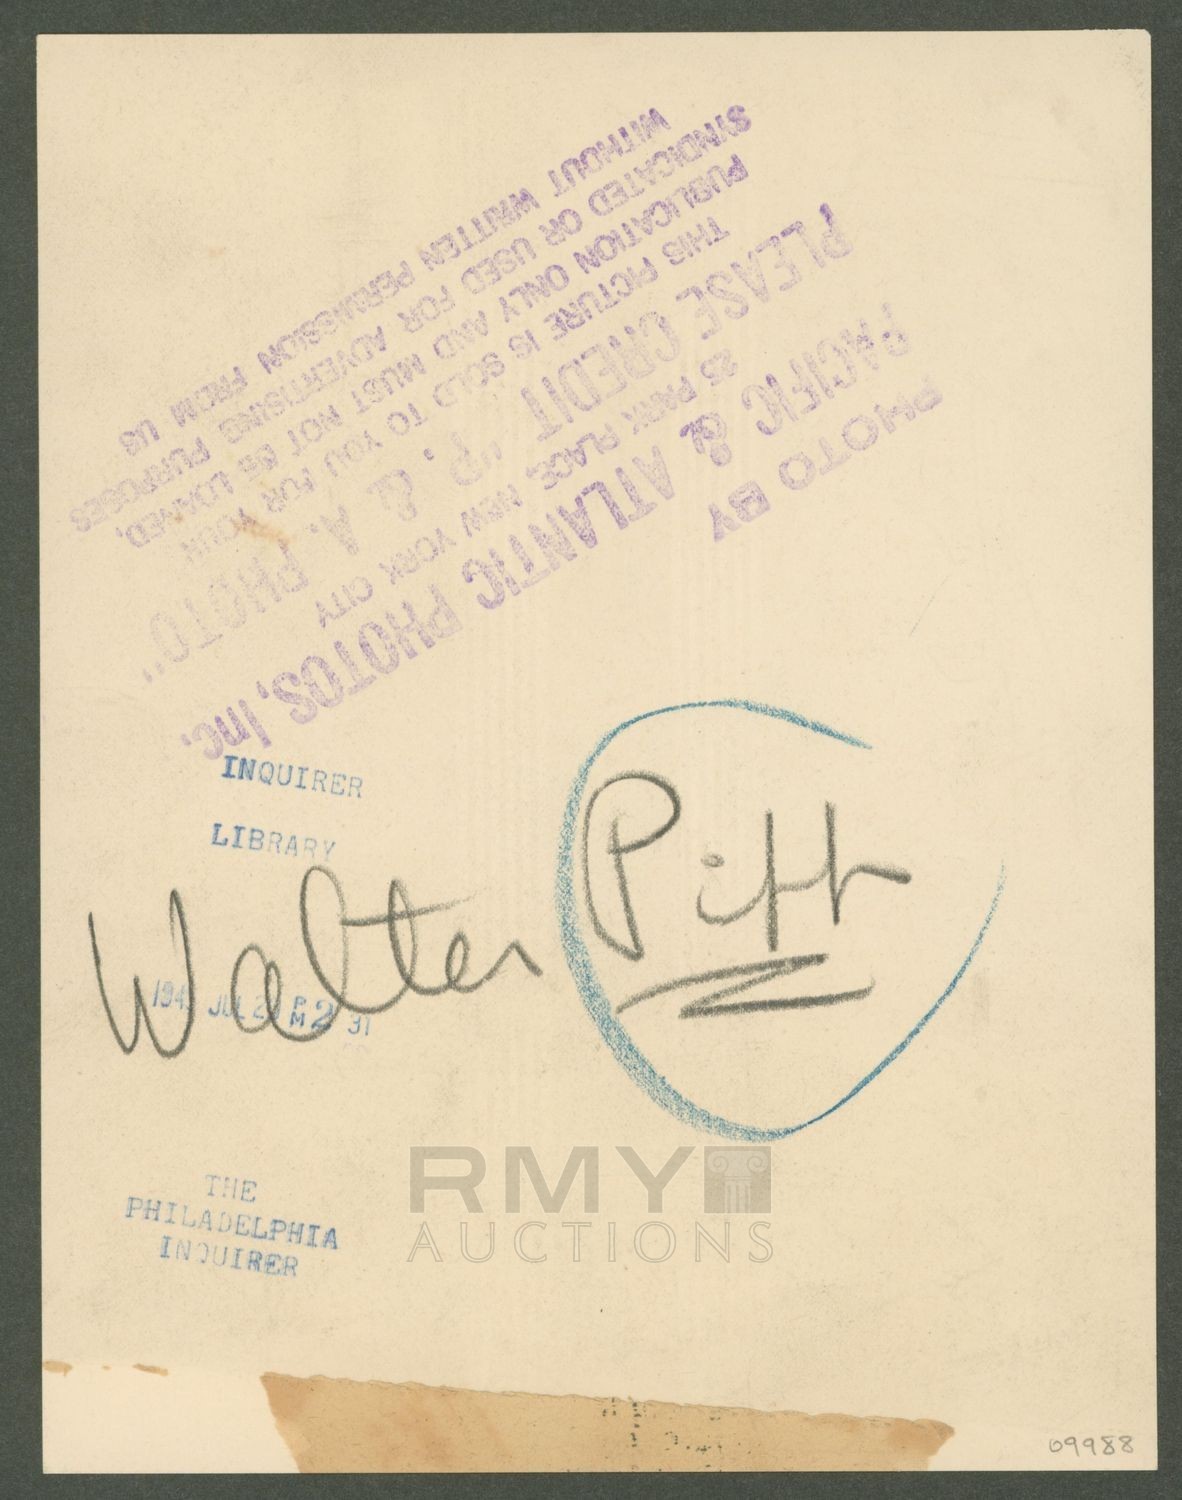 PHOTO BY
PACIFIC & ATLANTIC PHOTOS, Inc.
25 PARK PLACE, NEW YORK CITY
PLEASE CREDIT "P. & A. PHOTO"
THIS PICTURE IS SOLD TO YOU FOR YOUR
PUBLICATION ONLY AND MUST NOT BE LOANED,
SYNDICATED OR USED FOR ADVERTISING PURPOSES
WITHOUT WRITTEN PERMISSION FROM US
INQUIRER
LIBRARY
Walter Pitt
JUL PM 2 31
THE
PHILADELPHIA
INQUIRER
RMY
AUCTIONS
09988